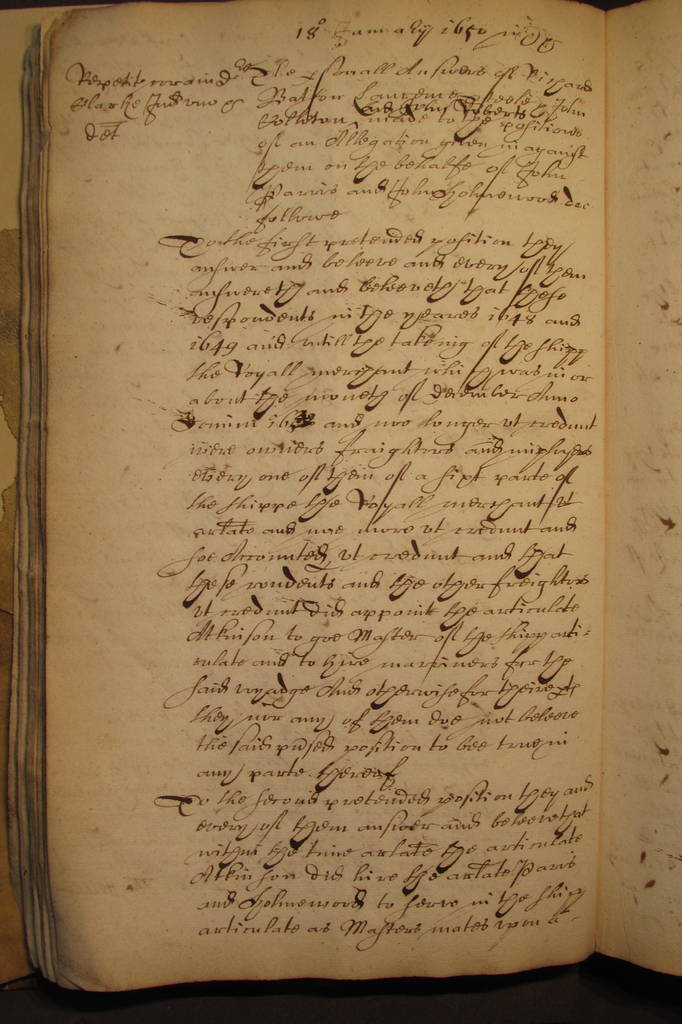 18° January 1650
Repetit coram d
Clarke Surr
det
The psonall Answers of Richard
Batson Lawrence Steele John
and John Roberts
made to the positions
of an Allegation given in against
them on the behalfe of John
Parris and John Holmewood doe
followe
To the first pretended position they
answer and beleeve and every of them
answereth and beleeveth that these
respondents in the yeares 1648 and
1649 and untill the takeing of the shipp
the Royall merchant which was in or
about the moneth of December Anno
Domini and noe longer vt credunt
were owners freighters and imployers
every one of them of a sixt parte of
the shippe the Royall merchant vt
arlate and noe more vt credunt and
soe Accounted vt credunt and that
these rondents and the other freighters
vt credunt did appoint the articulate
Atkinson to goe Master of the shipp arti=
culate and to hire marriners for the
said voyadge And otherwise for theire pts
they nor any of them doe not beleeve
the said ptised position to bee true in
any parte thereof
To the second pretended position they and
every of them answer and beleeve that
within the time arlate the articulate
Atkinson did hire the arlate Paris
and Holmewood to serve in the shipp
articulate as Masters mates vpon a